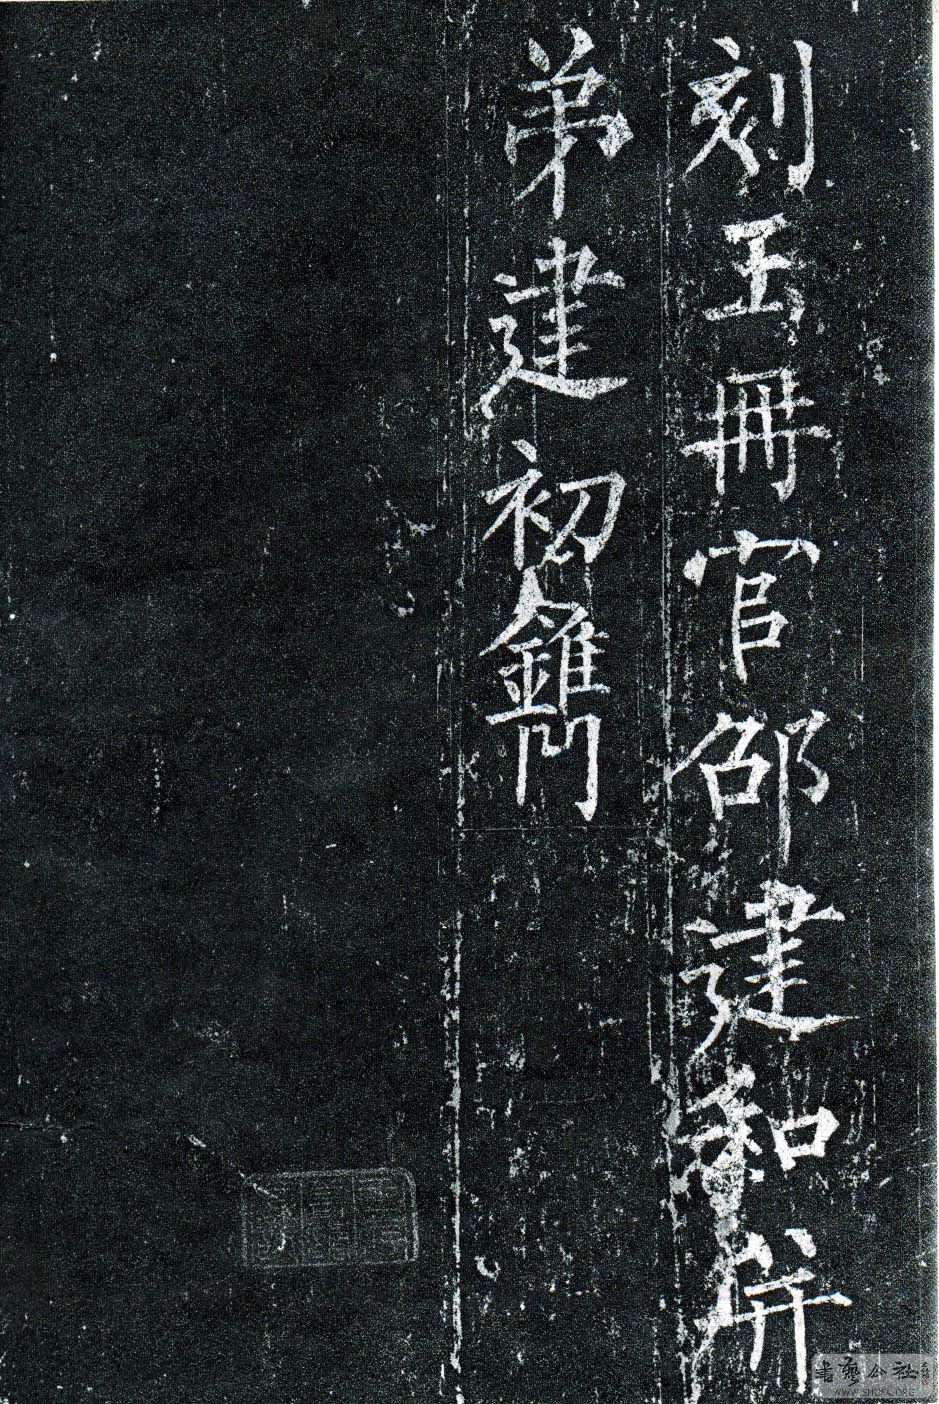 刻玉冊官邵建和并
弟建初鐫
書藝公社
WWW.SHCFA.ORG